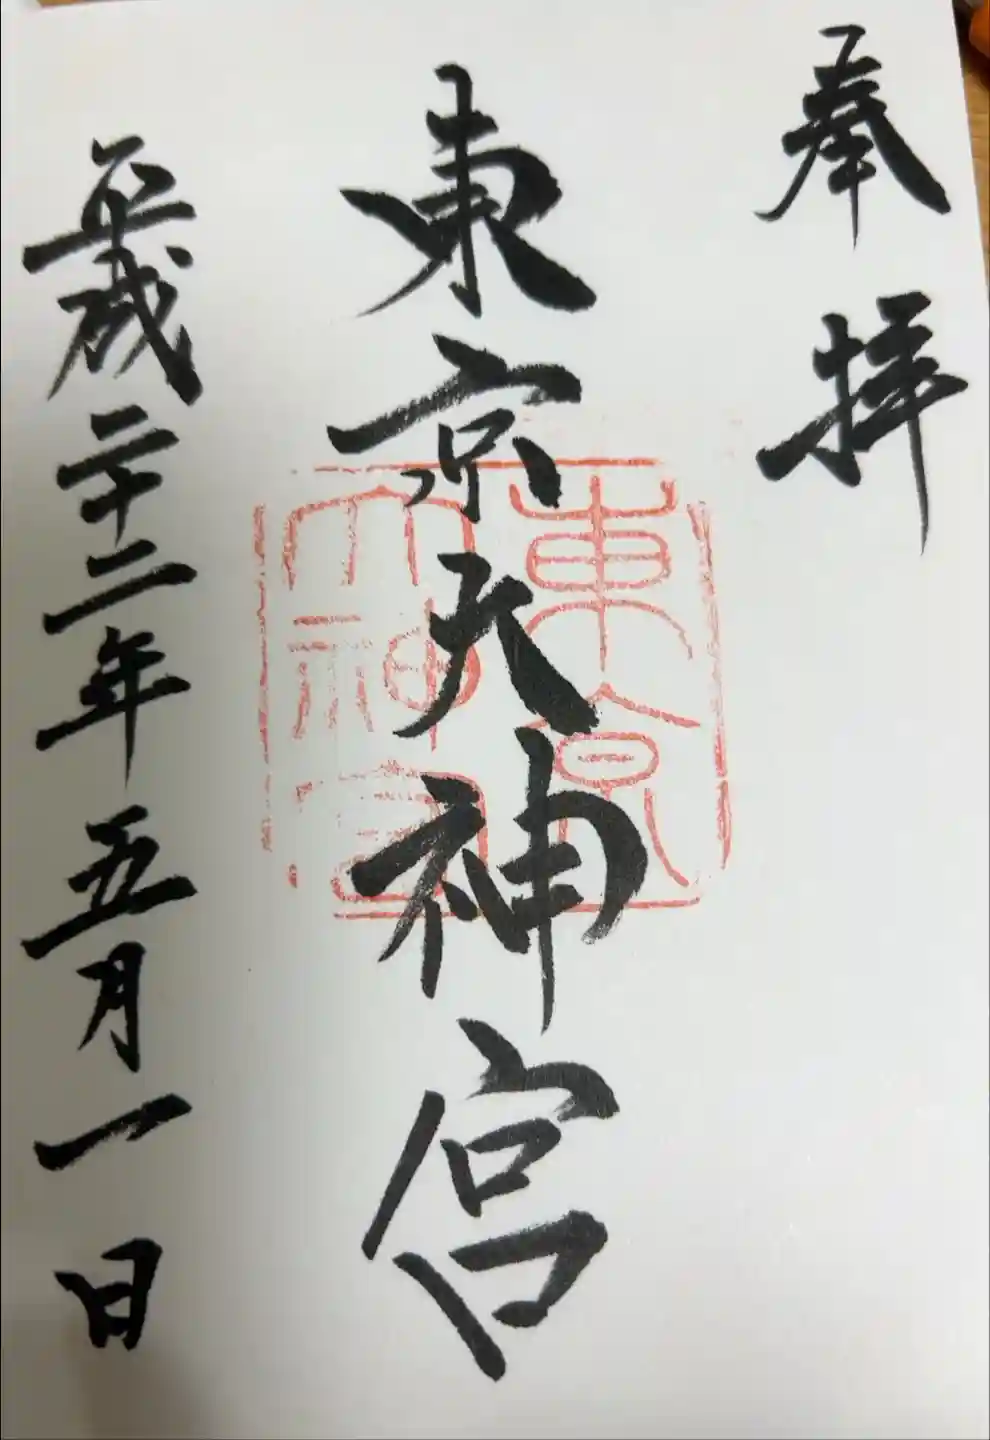 奉拝
東京大神宮
平成二十二年五月一日
東京
大神宮